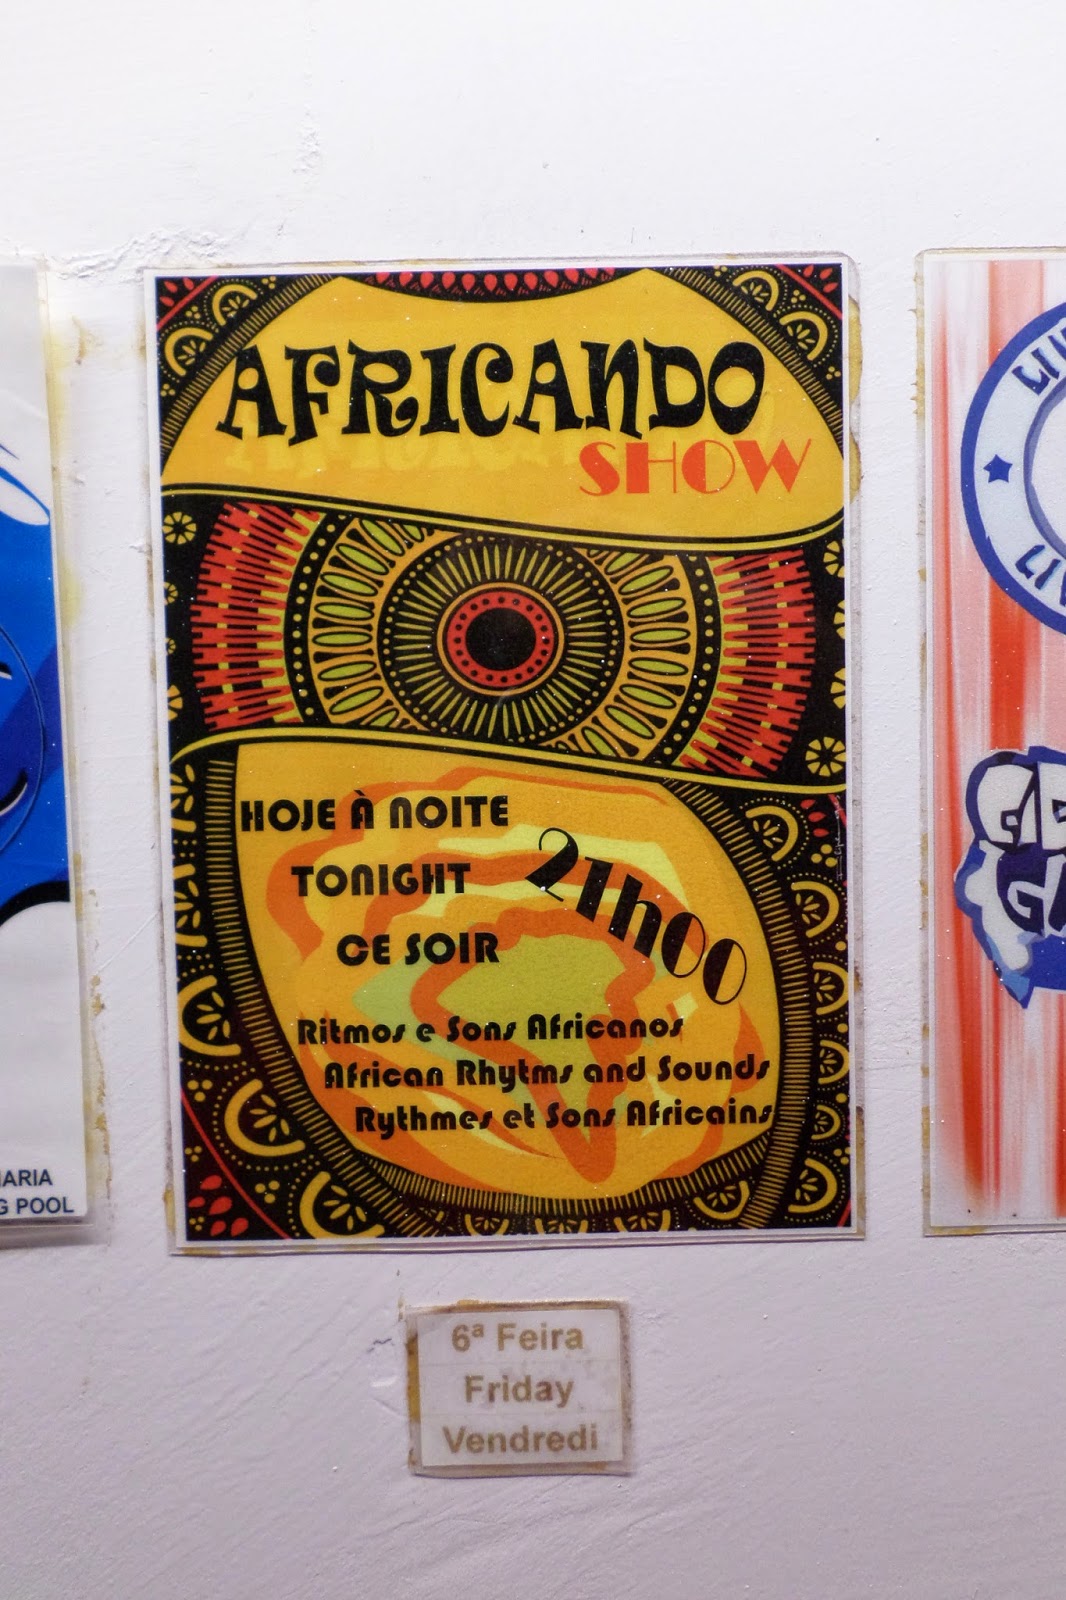 AFRICANDO
SHOW
HOJE À NOITE
TONIGHT
CE SOIR
21h00
Ritmos e Sons Africanos
African Rhytms and Sounds
Rythmes et Sons Africains
6ª Feira
Friday
Vendredi
POOL